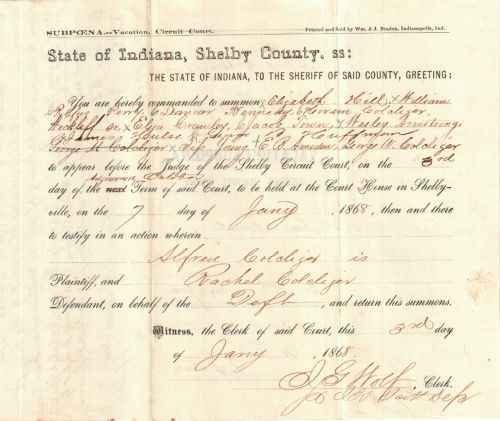 SUBPŒNA,—Vacation, Circuit Court. Printed and Sold by Wm. & J. Braden, Indianapolis, Ind.
State of Indiana, Shelby County, ss:
THE STATE OF INDIANA, TO THE SHERIFF OF SAID COUNTY, GREETING:
You are hereby commanded to summon x Elizabeth Hill x William
Perry x Kennedy x Hiram Colclizer
Wickliff Sr x Eliza Crawley x Jacob Town x Wesley Armstrong
Hulse Huffman
George W Colclizer x Young x E. B. Amsden George W Colclizer
to appear before the Judge of the Shelby Circuit Court, on the 3rd
Adjourned
day of the next Term of said Court, to be held at the Court House in Shelby-
ville, on the 7 day of Jany 1868, then and there
to testify in an action wherein
Alfred Colclizer is
Plaintiff, and Rachel Colclizer
Defendant, on behalf of the Deft, and return this summons.
Witness, the Clerk of said Court, this 3rd day
of Jany, 1868.
J G Wolf, Clerk.